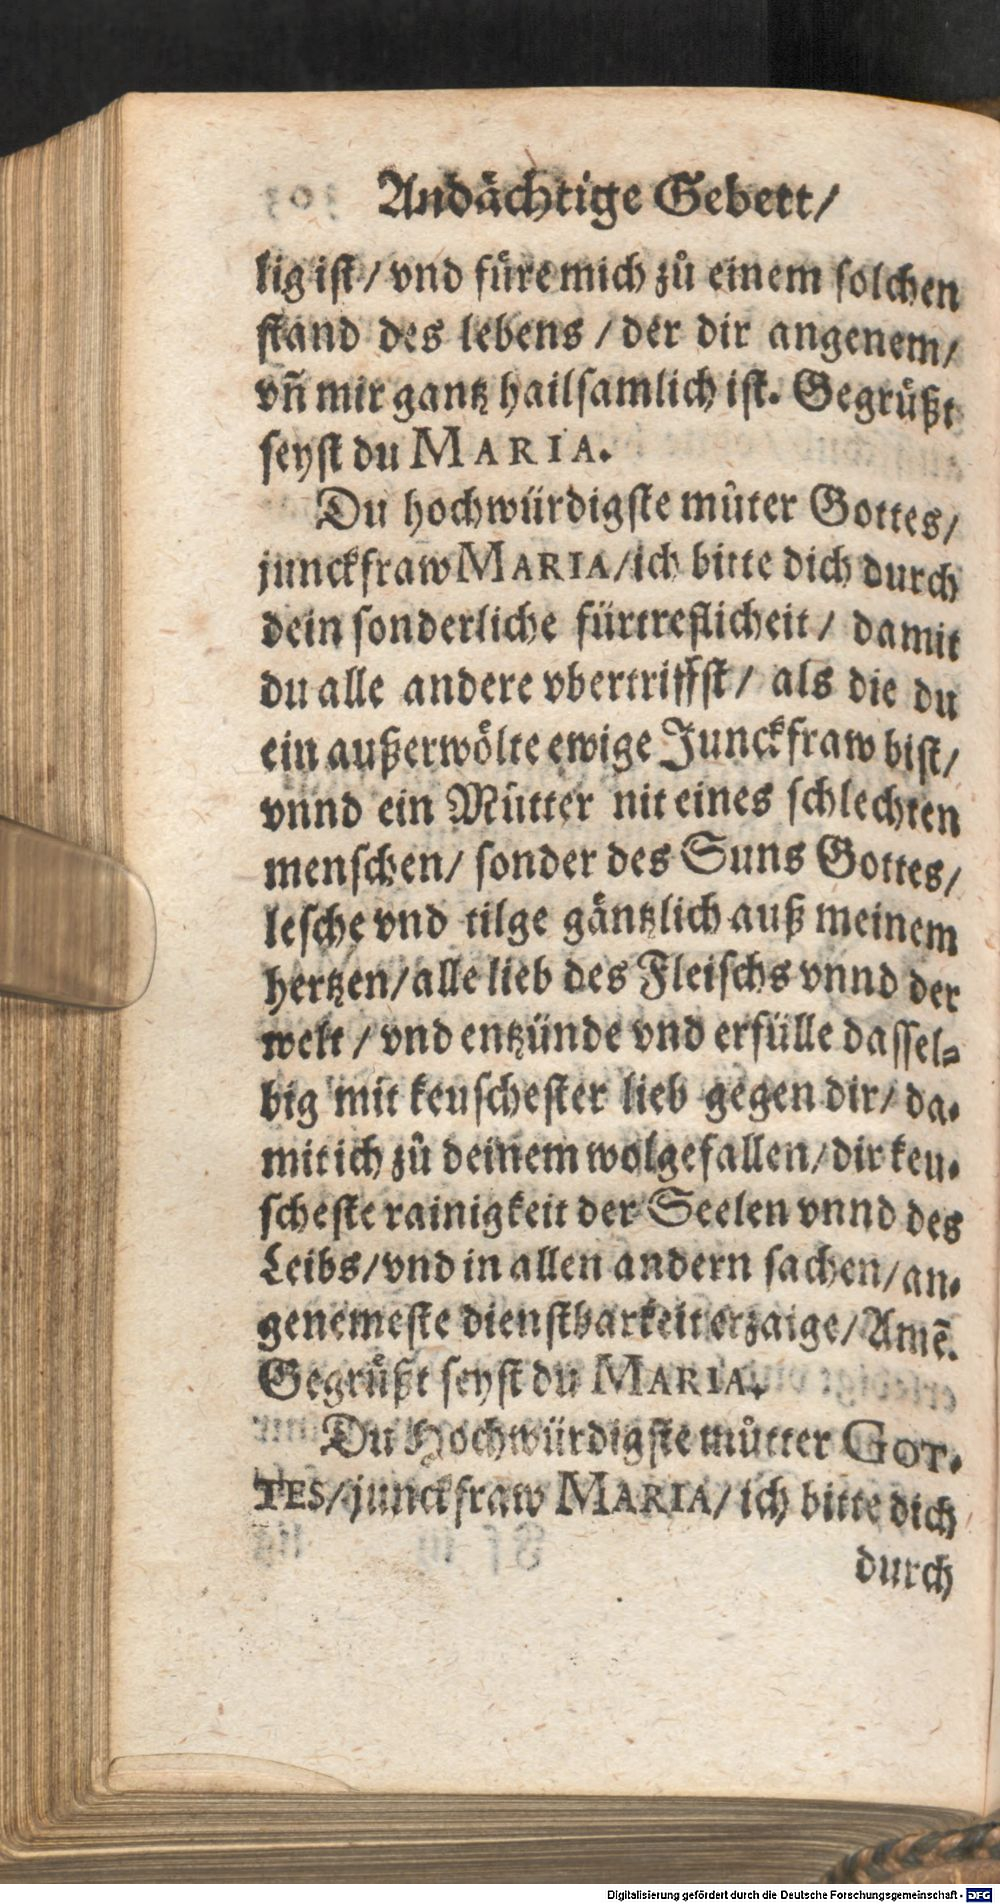 Andächtige Gebett/
lig ist/ vnd füre mich zů einem solchen
stand des lebens / der dir angenem/
vñ mir gantz hailsamlich ist. Gegrüßt
seyst du MARIA.
Du hochwürdigste můter Gottes/
junckfraw MARIA/ich bitte dich durch
dein sonderliche fürtreflicheit / damit
du alle andere vbertriffst/ als die du
ein außerwölte ewige Junckfraw bist/
vnnd ein Můtter nit eines schlechten
menschen/ sonder des Suns Gottes/
lesche vnd tilge gäntzlich auß meinem
hertzen/alle lieb des Fleischs vnnd der
welt / vnd entzünde vnd erfülle dassel=
big mit keuschester lieb gegen dir/ da-
mit ich zů deinem wolgefallen/dir keu-
scheste rainigkeit der Seelen vnnd des
Leibs/vnd in allen andern sachen/an-
genemeste dienstbarkeit erzaige/Amē.
Gegrüßt seyst du MARIA.
Du Hochwürdigste můtter GOT-
TES/junckfraw MARIA/ ich bitte dich
durch
Digitalisierung gefördert durch die Deutsche Forschungsgemeinschaft - DFG